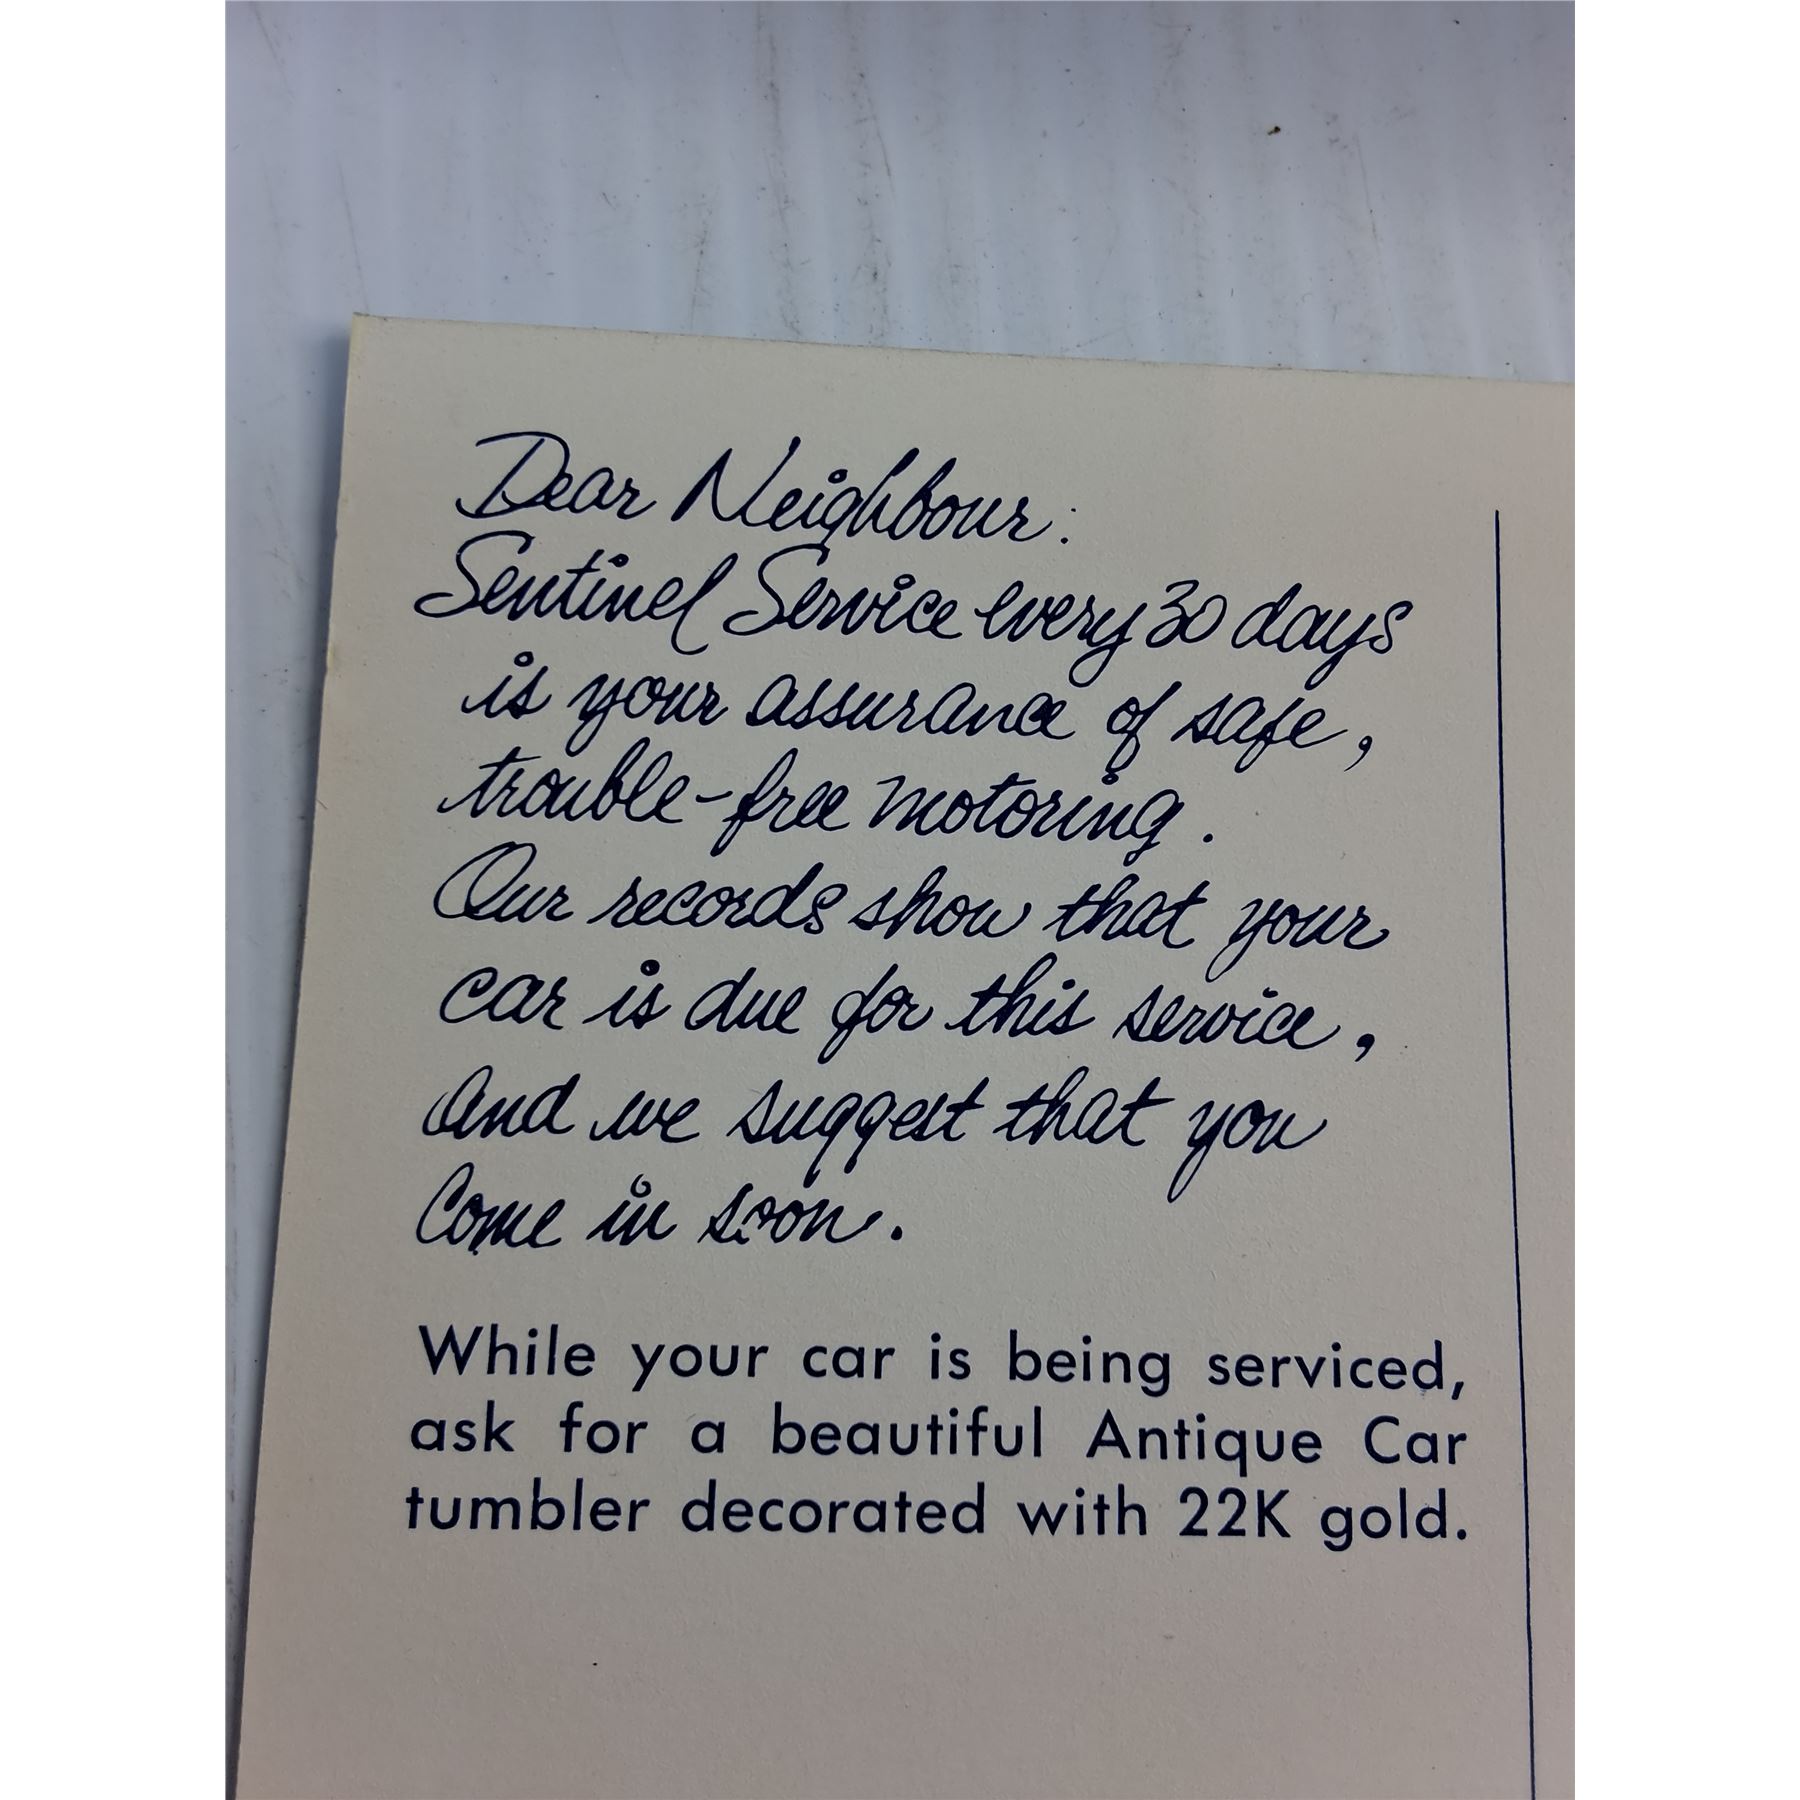 Dear Neighbour:
Sentinel Service every 30 days
is your assurance of safe,
trouble-free motoring.
Our records show that your
car is due for this service,
and we suggest that you
come in soon.
While your car is being serviced,
ask for a beautiful Antique Car
tumbler decorated with 22K gold.